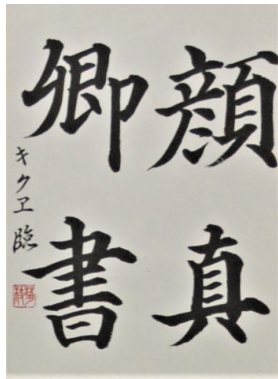 顔真
卿書
キクヱ臨